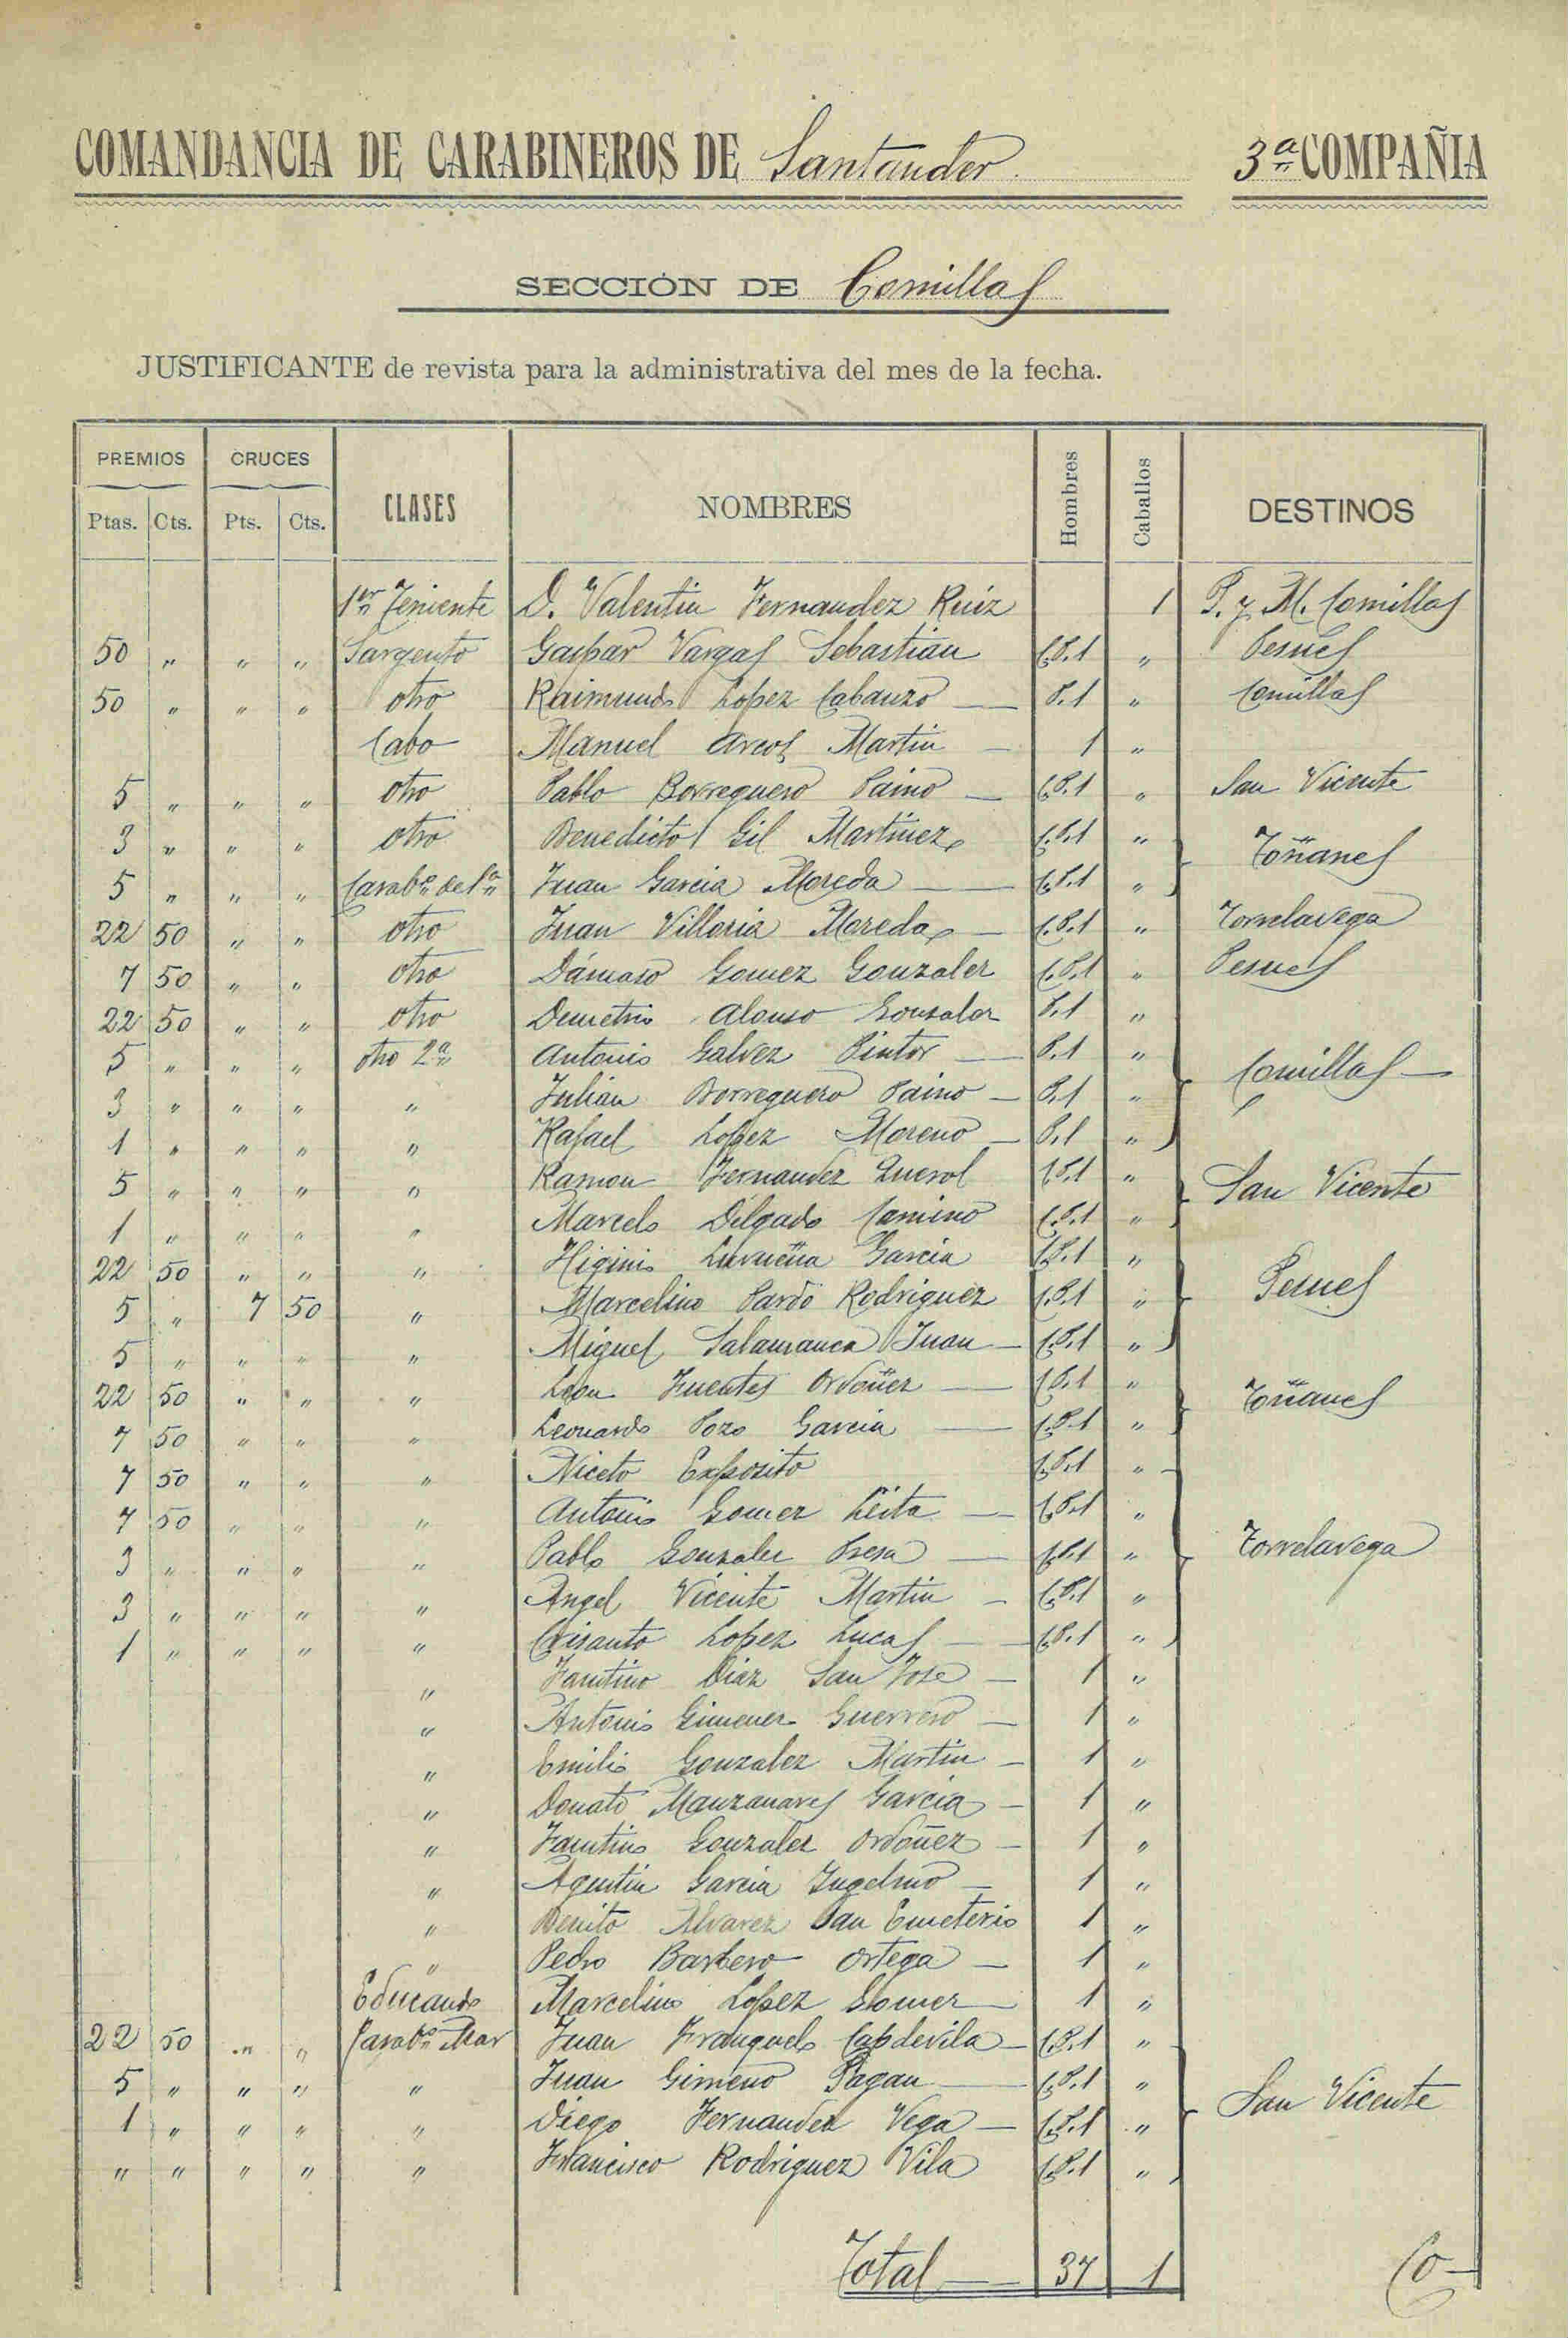 COMANDANCIA DE CARABINEROS DE Santander. 3ª COMPAÑIA
SECCIÓN DE Comillas
JUSTIFICANTE de revista para la administrativa del mes de la fecha.
PREMIOS CRUCES CLASES NOMBRES Hombres Caballos DESTINOS
Ptas. Cts. Pts. Cts.
1er Teniente D. Valentin Fernandez Ruiz 1 P. y M. Comillas
50 " " " Sargento Gaspar Vargas Sebastian C.P.1 " Pesues
50 " " " otro Raimundo Lopez Cabanzo — P.1 " Comillas
Cabo Manuel Arcos Martin — 1 "
5 " " " otro Pablo Borreguero Paino — C.P.1 " San Vicente
3 " " " otro Benedicto Gil Martinez C.P.1 "
Toñanes
5 " " " Carabo de 1a Juan Garcia Moreda — C.P.1 "
22 50 " " otro Juan Villoria Moreda — C.P.1 " Torrelavega
7 50 " " otro Dámaso Gomez Gonzalez C.P.1 " Pesues
22 50 " " otro Demetrio Alonso Gonzalez P.1 "
5 " " " otro 2a Antonio Galvez Pintor — P.1 "
Comillas —
3 " " " " Julian Borreguero Paino — P.1 "
1 " " " " Rafael Lopez Moreno — P.1 "
5 " " " " Ramon Fernandez Querol C.P.1 "
San Vicente
1 " " " " Marcelo Delgado Camino C.P.1 "
22 50 " " " Higinio Lurueña Garcia C.P.1 "
5 " 7 50 " Marcelino Pardo Rodriguez C.P.1 " Pesues
5 " " " " Miguel Salamanca Juan — C.P.1 "
22 50 " " " Leon Fuentes Ordoñez — C.P.1 "
Toñanes
7 50 " " " Leonardo Pozo Garcia — C.P.1 "
7 50 " " " Niceto Exposito C.P.1 "
7 50 " " " Antonio Gomez Leita — C.P.1 "
3 " " " " Pablo Gonzalez Presa — C.P.1 " Torrelavega
3 " " " " Angel Vicente Martin — C.P.1 "
1 " " " " Crisanto Lopez Lucas — C.P.1 "
" Faustino Diaz San Jose — 1 "
" Antonio Gimenez Guerrero — 1 "
" Emilio Gonzalez Martin — 1 "
" Donato Manzanares Garcia — 1 "
" Faustino Gonzalez Ordoñez — 1 "
" Agustin Garcia — 1 "
" Benito Alvarez San Emeterio 1 "
" Pedro Barbero Ortega — 1 "
Educando Marcelino Lopez Gomez 1 "
22 50 " " Carabo Mar Juan Franquelo Capdevila — C.P.1 "
5 " " " " Juan Gimeno Pagan — C.P.1 "
San Vicente
1 " " " " Diego Fernandez Vega — C.P.1 "
" " " " " Francisco Rodriguez Vila C.P.1 "
Total — 37 1